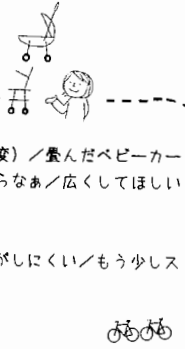 変）／畳んだベビーカー
らなぁ／広くしてほしい
がしにくい／もう少しス